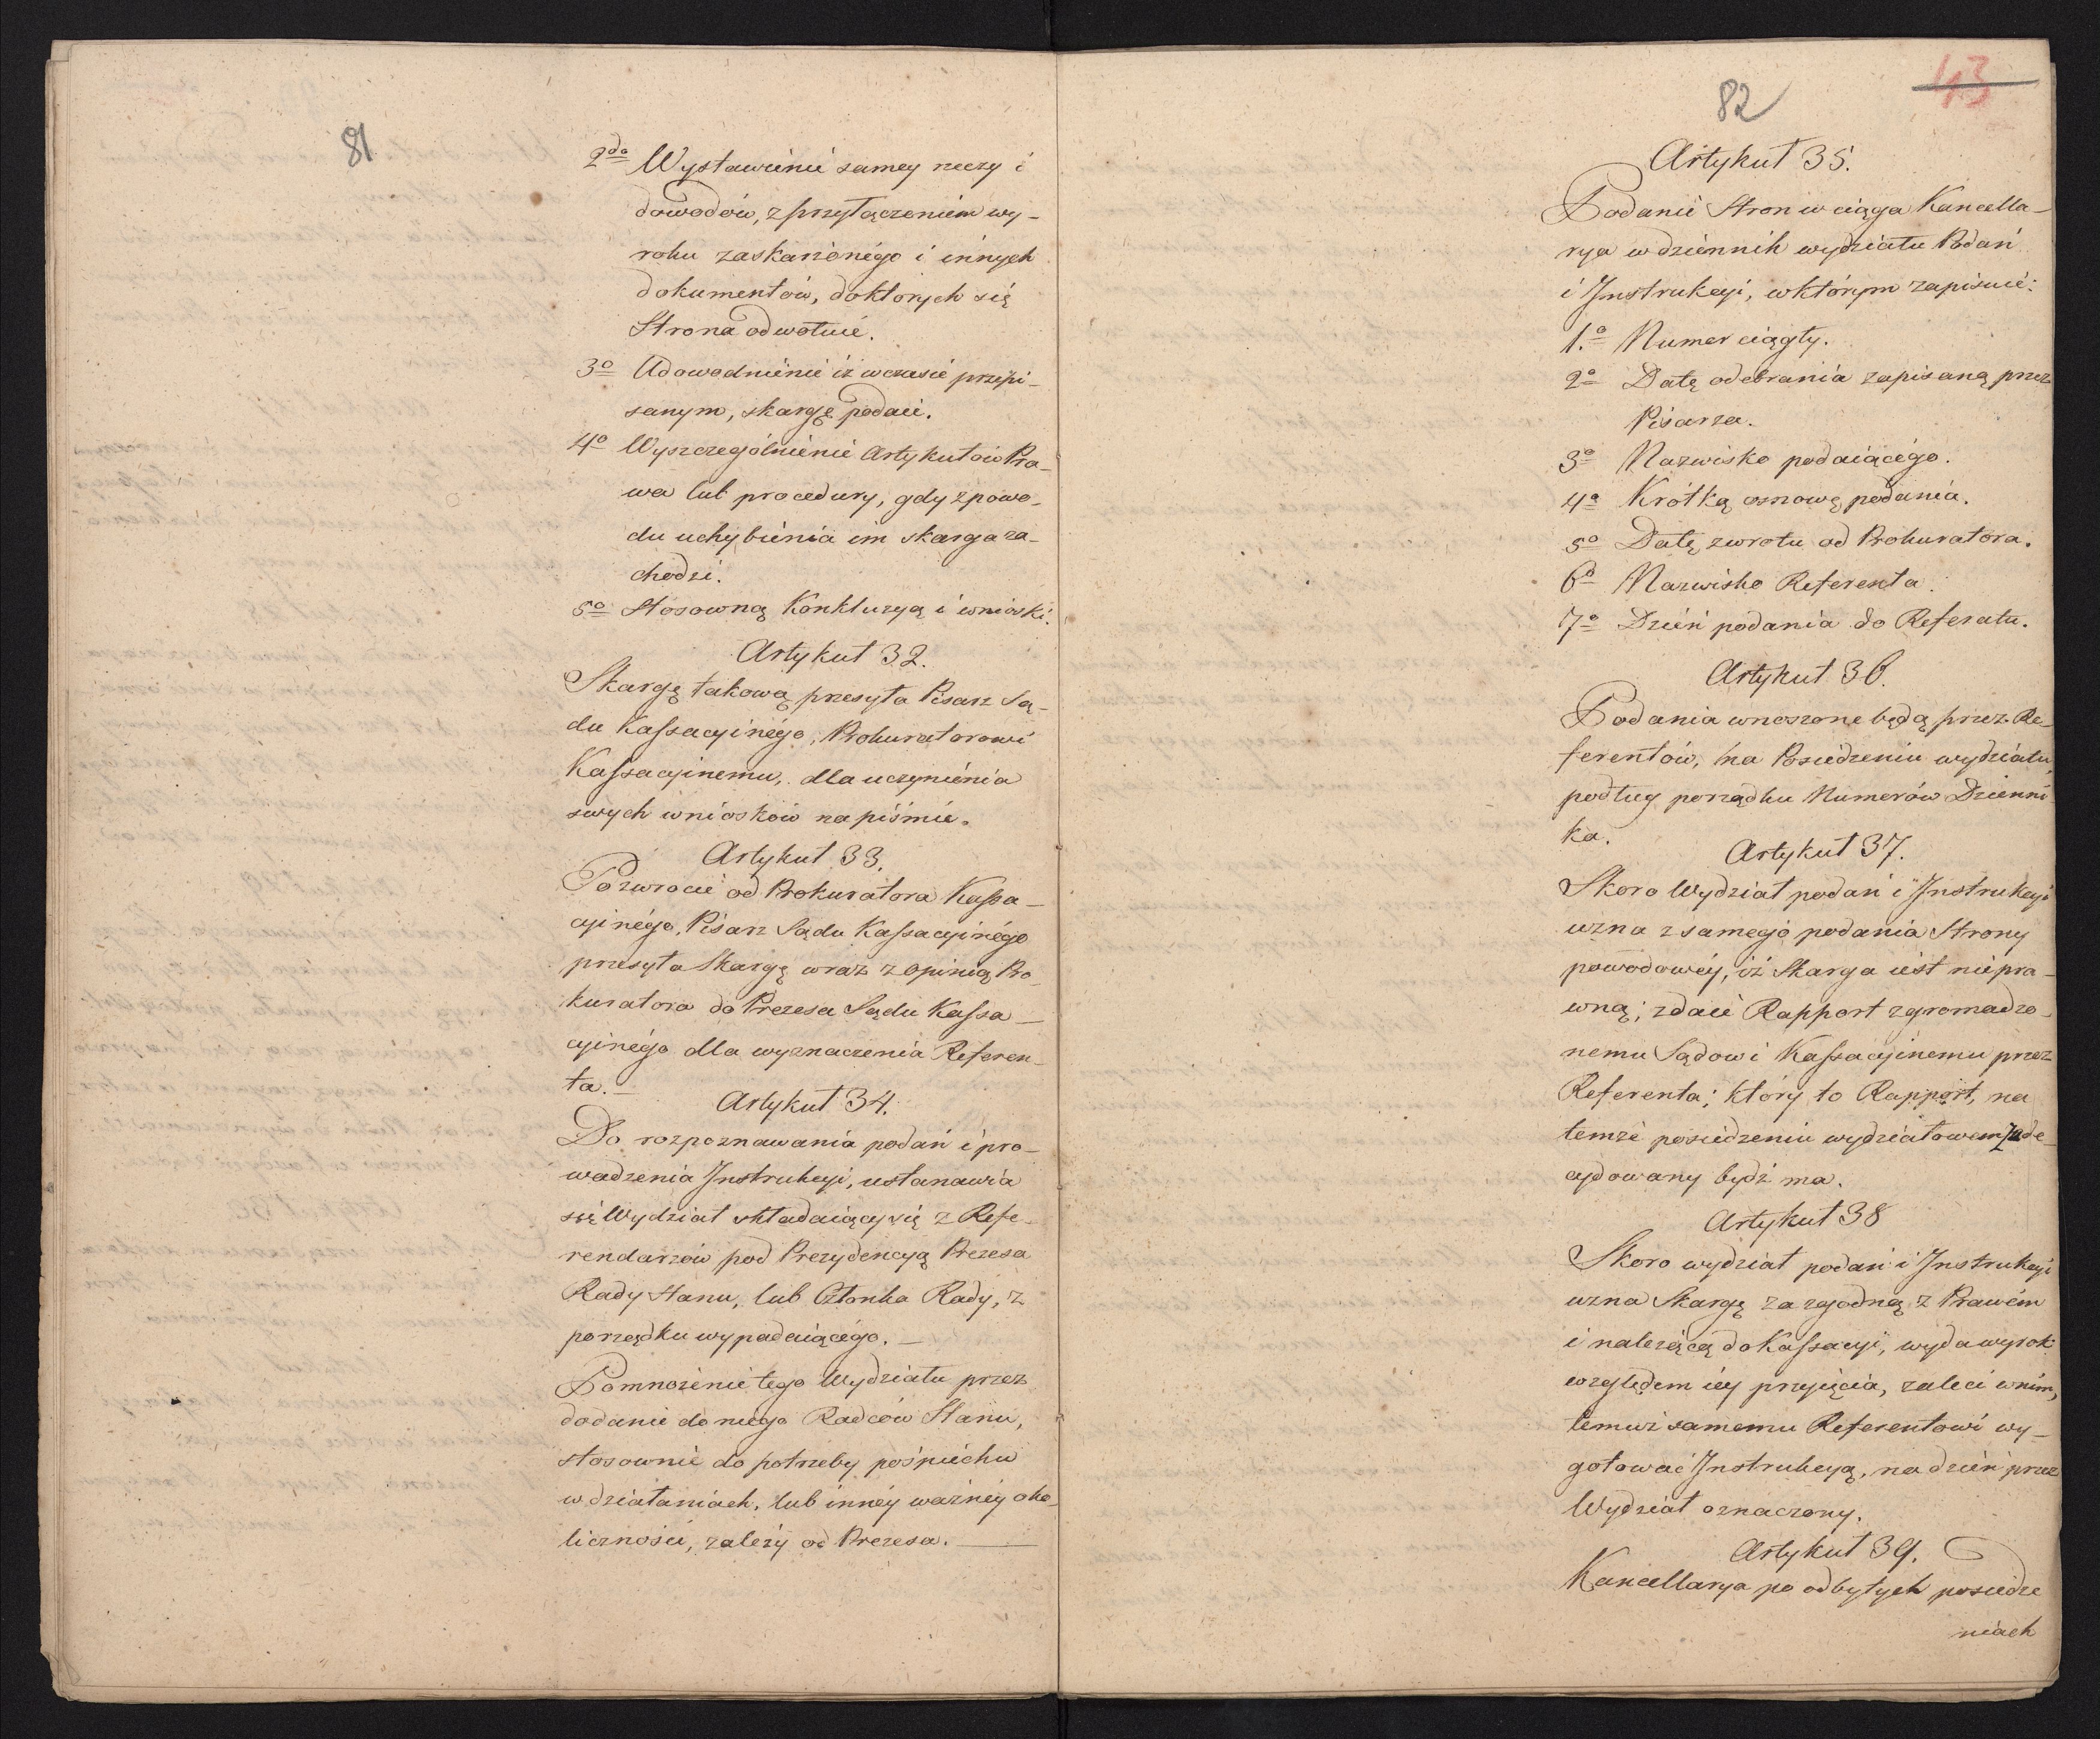 81
2do Wystawienie samey rzeczy i
dowodów, z przyłączeniem wy-
roku zaskarżonégo i innych
dokumentów, do których się
Strona odwołuie.
3o Udowodnienie iż w czasie przepi-
sanym, skargę podaie.
4o Wyszczególnienie Artykułów Pra-
wa lub procedury, gdy z powo-
du uchybienia im skarga za-
chodzi.
5o Stosowną Konkluzyą i wnioski.
Artykuł 32.
Skargę takową przesyła Pisarz Są-
du Kassacyinégo, Prokuratorowi
Kassacyinemu, dla uczynienia
swych wniosków na piśmie.
Artykuł 33.
Po zwrocie od Prokuratora Kassa-
cyinégo, Pisarz Sądu Kassacyinégo
przesyła Skargę wraz z opinią Pro-
kuratora do Prezesa Sądu Kassa-
cyinégo dla wyznaczenia Referen-
ta.
Artykuł 34.
Do rozpoznawania podań i pro-
wadzenia Instrukcyi, ustanawia
się Wydział składaiący się z Refe-
rendarzów pod Prezydencyą Prezesa
Rady Stanu, lub Członka Rady, z
porządku wypadaiącégo.
Pomnożenie tego Wydziału przez
dodanie do niego Radców Stanu,
stosownie do potrzeby pośpiechu
w działaniach, lub innéy ważnéy oko-
liczności, zależy od Prezesa.
82
43
Artykuł 35.
Podanie Stron w ciąga Kancella-
rya w dziennik wydziału Podań
i Instrukcyi, w którym zapisuie:
1.o Numer ciągły.
2o Datę odebrania zapisaną przez
Pisarza.
3o Nazwisko podaiącégo.
4o Krótką osnowę podania.
5o Datę zwrotu od Prokuratora.
6o Nazwisko Referenta.
7o Dzień podania do Referatu.
Artykuł 36.
Podania wnoszone będą przez Re-
ferentów, na Posiedzeniu wydziału,
podług porządku Numerów Dzienni
ka.
Artykuł 37.
Skoro Wydział podań i Instrukcyi
uzna z samego podania Strony
powodowéy, iż Skarga iest niepra-
wną; zdaie Rapport zgromadzo-
nemu Sądowi Kassacyinemu przez
Referenta; który to Rapport, na
temże posiedzeniu wydziałowem zade-
cydowany bydź ma.
Artykuł 38
Skoro wydział podań i Instrukcyi
uzna Skargę za zgodną z Prawém
i należącą do Kassacyi, wyda wyrok
względem iéy przyięcia, zaleci w nim,
temuż samemu Referentowi wy-
gotować Instrukcyą, na dzień przez
Wydział oznaczony.
Artykuł 39.
Kancellarya po odbytych posiedze
niach